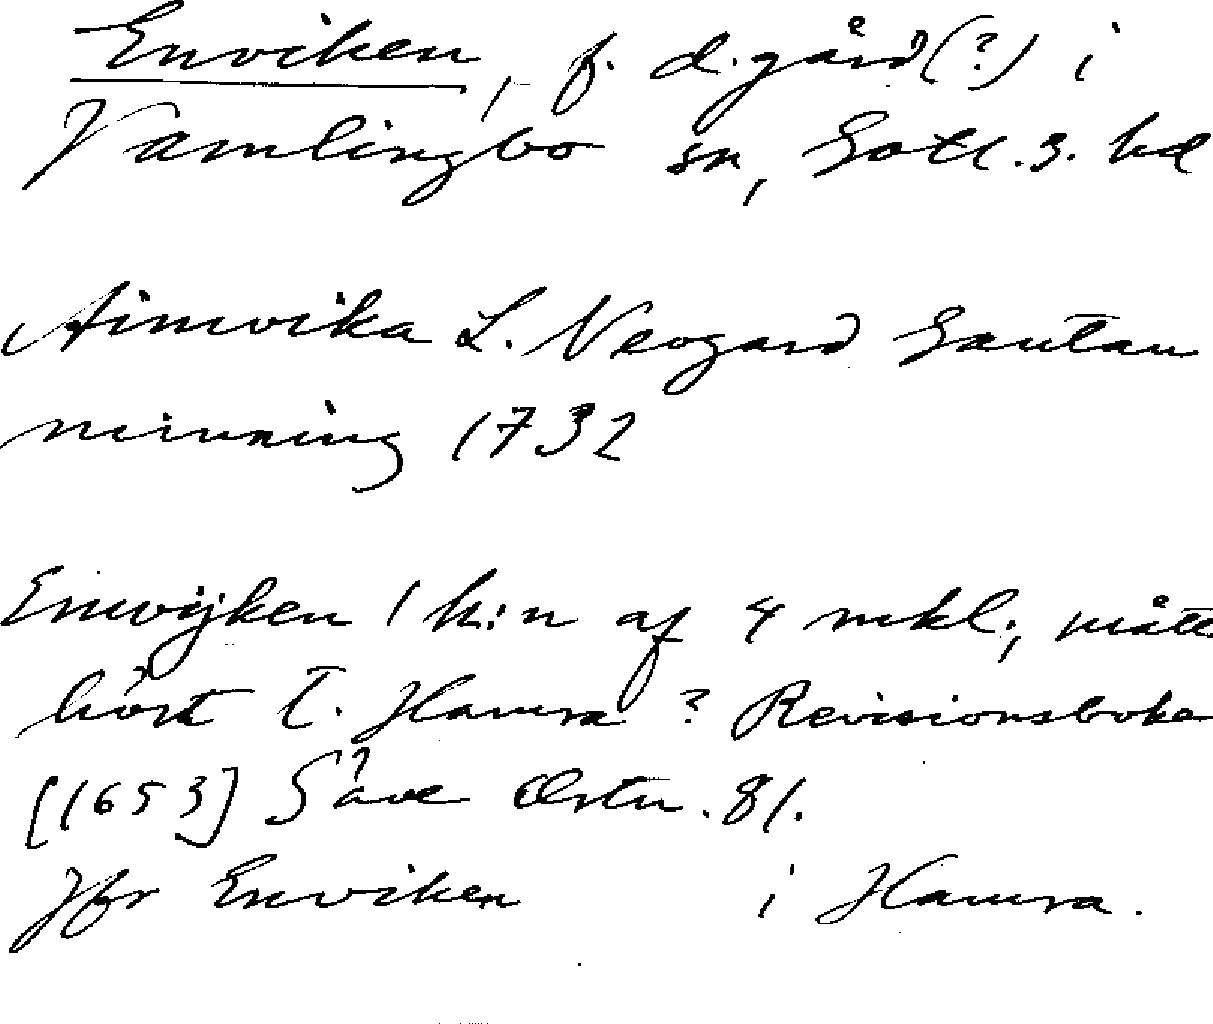 Enviken, f. d. gård (?) i
Vamlingbo sn, Gotl. s. hd
Ainwika L. Neogard Gautau
minning 1732
Enwijken 1 h:n af 4 mkl.; måtte
hört t. Hamra? Revisionsboken
[1653] Säve Ortn. 81.
Jfr Enviken i Hamra.